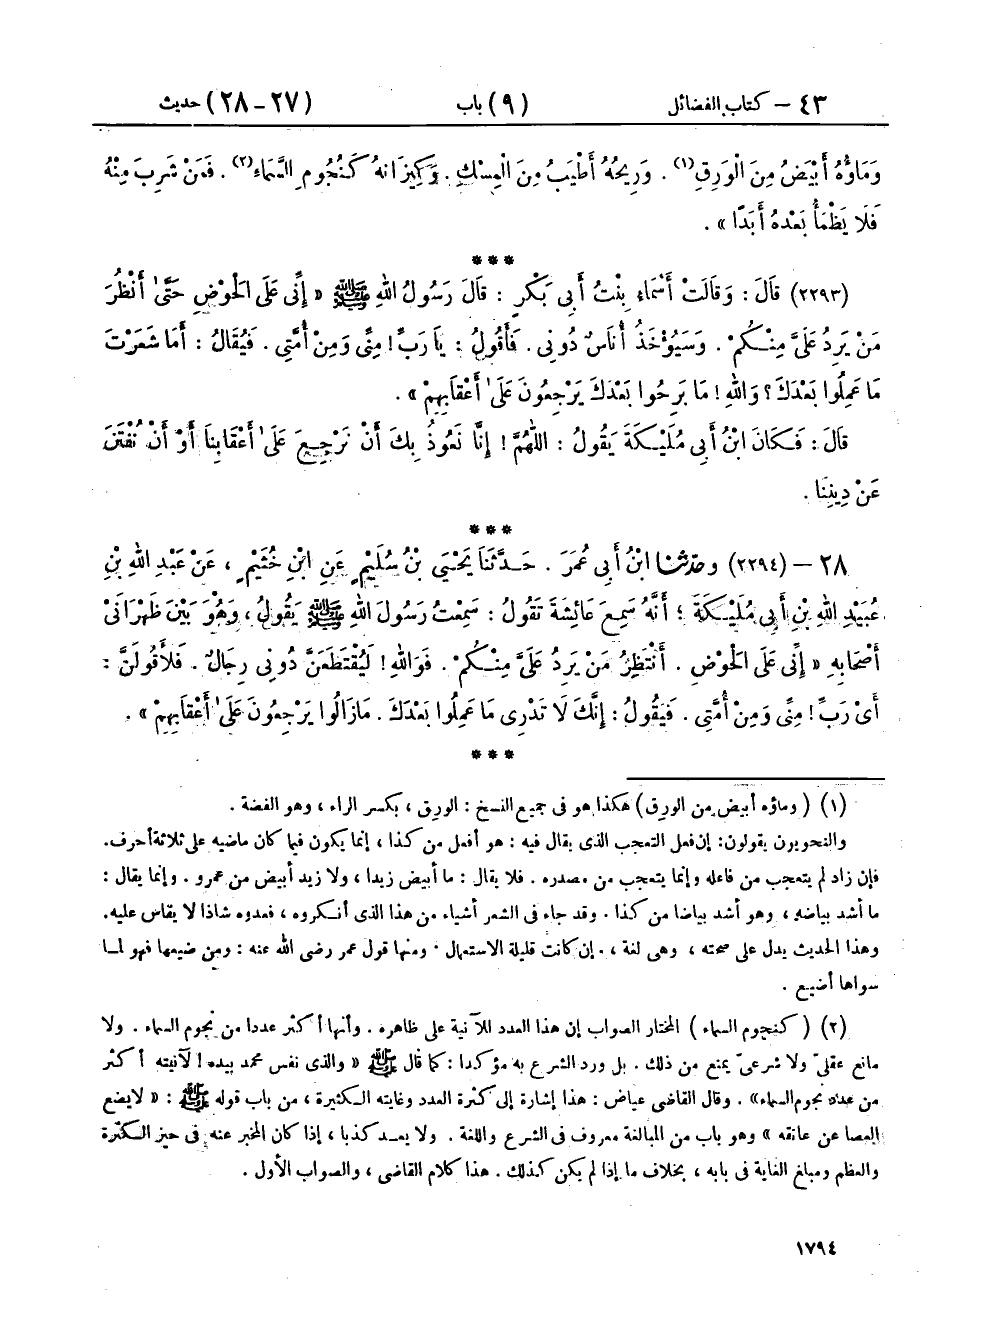 ٤٣ – كتاب الفضائل (٩) باب (٢٧ – ٢٨) حديث
وَمَاؤُهُ أَبْيَضُ مِنَ الْوَرِقِ(١) . وَرِيحُهُ أَطْيَبُ مِنَ الْمِسْكِ . وَكِيزَانُهُ كَنُجُومِ السَّمَاءِ(٢) . فَمَنْ شَرِبَ مِنْهُ
فَلَا يَظْمَأُ بَعْدَهُ أَبَدًا » .
***
(٢٢٩٣) قَالَ : وَقَالَتْ أَسْمَاءُ بِنْتُ أَبِي بَكْرٍ : قَالَ رَسُولُ اللهِ ﷺ « إِنِّي عَلَى الْحَوْضِ حَتَّىٰ أَنْظُرَ
مَنْ يَرِدُ عَلَيَّ مِنْكُمْ . وَسَيُؤْخَذُ أُنَاسٌ دُونِي . فَأَقُولُ : يَا رَبِّ ! مِنِّي وَمِنْ أُمَّتِي . فَيُقَالُ : أَمَا شَعَرْتَ
مَا عَمِلُوا بَعْدَكَ ؟ وَاللهِ ! مَا بَرِحُوا بَعْدَكَ يَرْجِعُونَ عَلَىٰ أَعْقَابِهِمْ » .
قَالَ : فَكَانَ ابْنُ أَبِي مُلَيْكَةَ يَقُولُ : اللّٰهُمَّ ! إِنَّا نَعُوذُ بِكَ أَنْ نَرْجِعَ عَلَىٰ أَعْقَابِنَا أَوْ أَنْ نُفْتَنَ
عَنْ دِينِنَا .
***
٢٨ – (٢٢٩٤) وحدّثنا ابْنُ أَبِي عُمَرَ . حَدَّثَنَا يَحْيَى بْنُ سُلَيْمٍ عَنِ ابْنِ خُثَيْمٍ ، عَنْ عَبْدِ اللهِ بْنِ
عُبَيْدِ اللهِ بْنِ أَبِي مُلَيْكَةَ ؛ أَنَّهُ سَمِعَ عَائِشَةَ تَقُولُ : سَمِعْتُ رَسُولَ اللهِ ﷺ يَقُولُ ، وَهُوَ بَيْنَ ظَهْرَانَيْ
أَصْحَابِهِ « إِنِّي عَلَى الْحَوْضِ . أَنْتَظِرُ مَنْ يَرِدُ عَلَيَّ مِنْكُمْ . فَوَاللهِ ! لَيُقْتَطَعَنَّ دُونِي رِجَالٌ . فَلَأَقُولَنَّ :
أَيْ رَبِّ ! مِنِّي وَمِنْ أُمَّتِي . فَيَقُولُ : إِنَّكَ لَا تَدْرِي مَا عَمِلُوا بَعْدَكَ . مَازَالُوا يَرْجِعُونَ عَلَىٰ أَعْقَابِهِمْ » .
***
(١) ( وماؤه أبيض من الورق) هكذا هو فى جميع النسخ : الورق ، بكسر الراء ، وهو الفضة .
والنحويون يقولون : إن فعل التعجب الذى يقال فيه : هو أفعل من كذا ، إنما يكون فيما كان ماضيه على ثلاثة أحرف .
فإن زاد لم يتعجب من فاعله وإنما يتعجب من مصدره . فلا يقال : ما أبيض زيدا ، ولا زيد أبيض من عمرو . وإنما يقال :
ما أشد بياضه ، وهو أشد بياضا من كذا . وقد جاء فى الشعر أشياء من هذا الذى أنكروه ، فعدوه شاذا لا يقاس عليه.
وهذا الحديث يدل على صحته ، وهى لغة ، وإن كانت قليلة الاستعمال . ومنها قول عمر رضى الله عنه : ومن ضيعها فهو لما
سواها أضيع .
(٢) ( كنجوم السماء ) المختار الصواب إن هذا العدد للآنية على ظاهره . وأنها أكثر عددا من نجوم السماء . ولا
مانع عقلىّ ولا شرعىّ يمنع من ذلك . بل ورد الشرع به مؤكدا : كما قال ﷺ « والذى نفس محمد بيده ! لآنيته أكثر
من عدد نجوم السماء» . وقال القاضى عياض : هذا إشارة إلى كثرة العدد وغايته الكثيرة ، من باب قوله ﷺ : « لايضع
العصا عن عاتقه » وهو باب من المبالغة معروف فى الشرع واللغة . ولا يعد كذبا ، إذا كان المخبر عنه فى حيز الكثرة
والعظم ومبلغ الغاية فى بابه ، بخلاف ما إذا لم يكن كذلك . هذا كلام القاضى ، والصواب الأول .
١٧٩٤